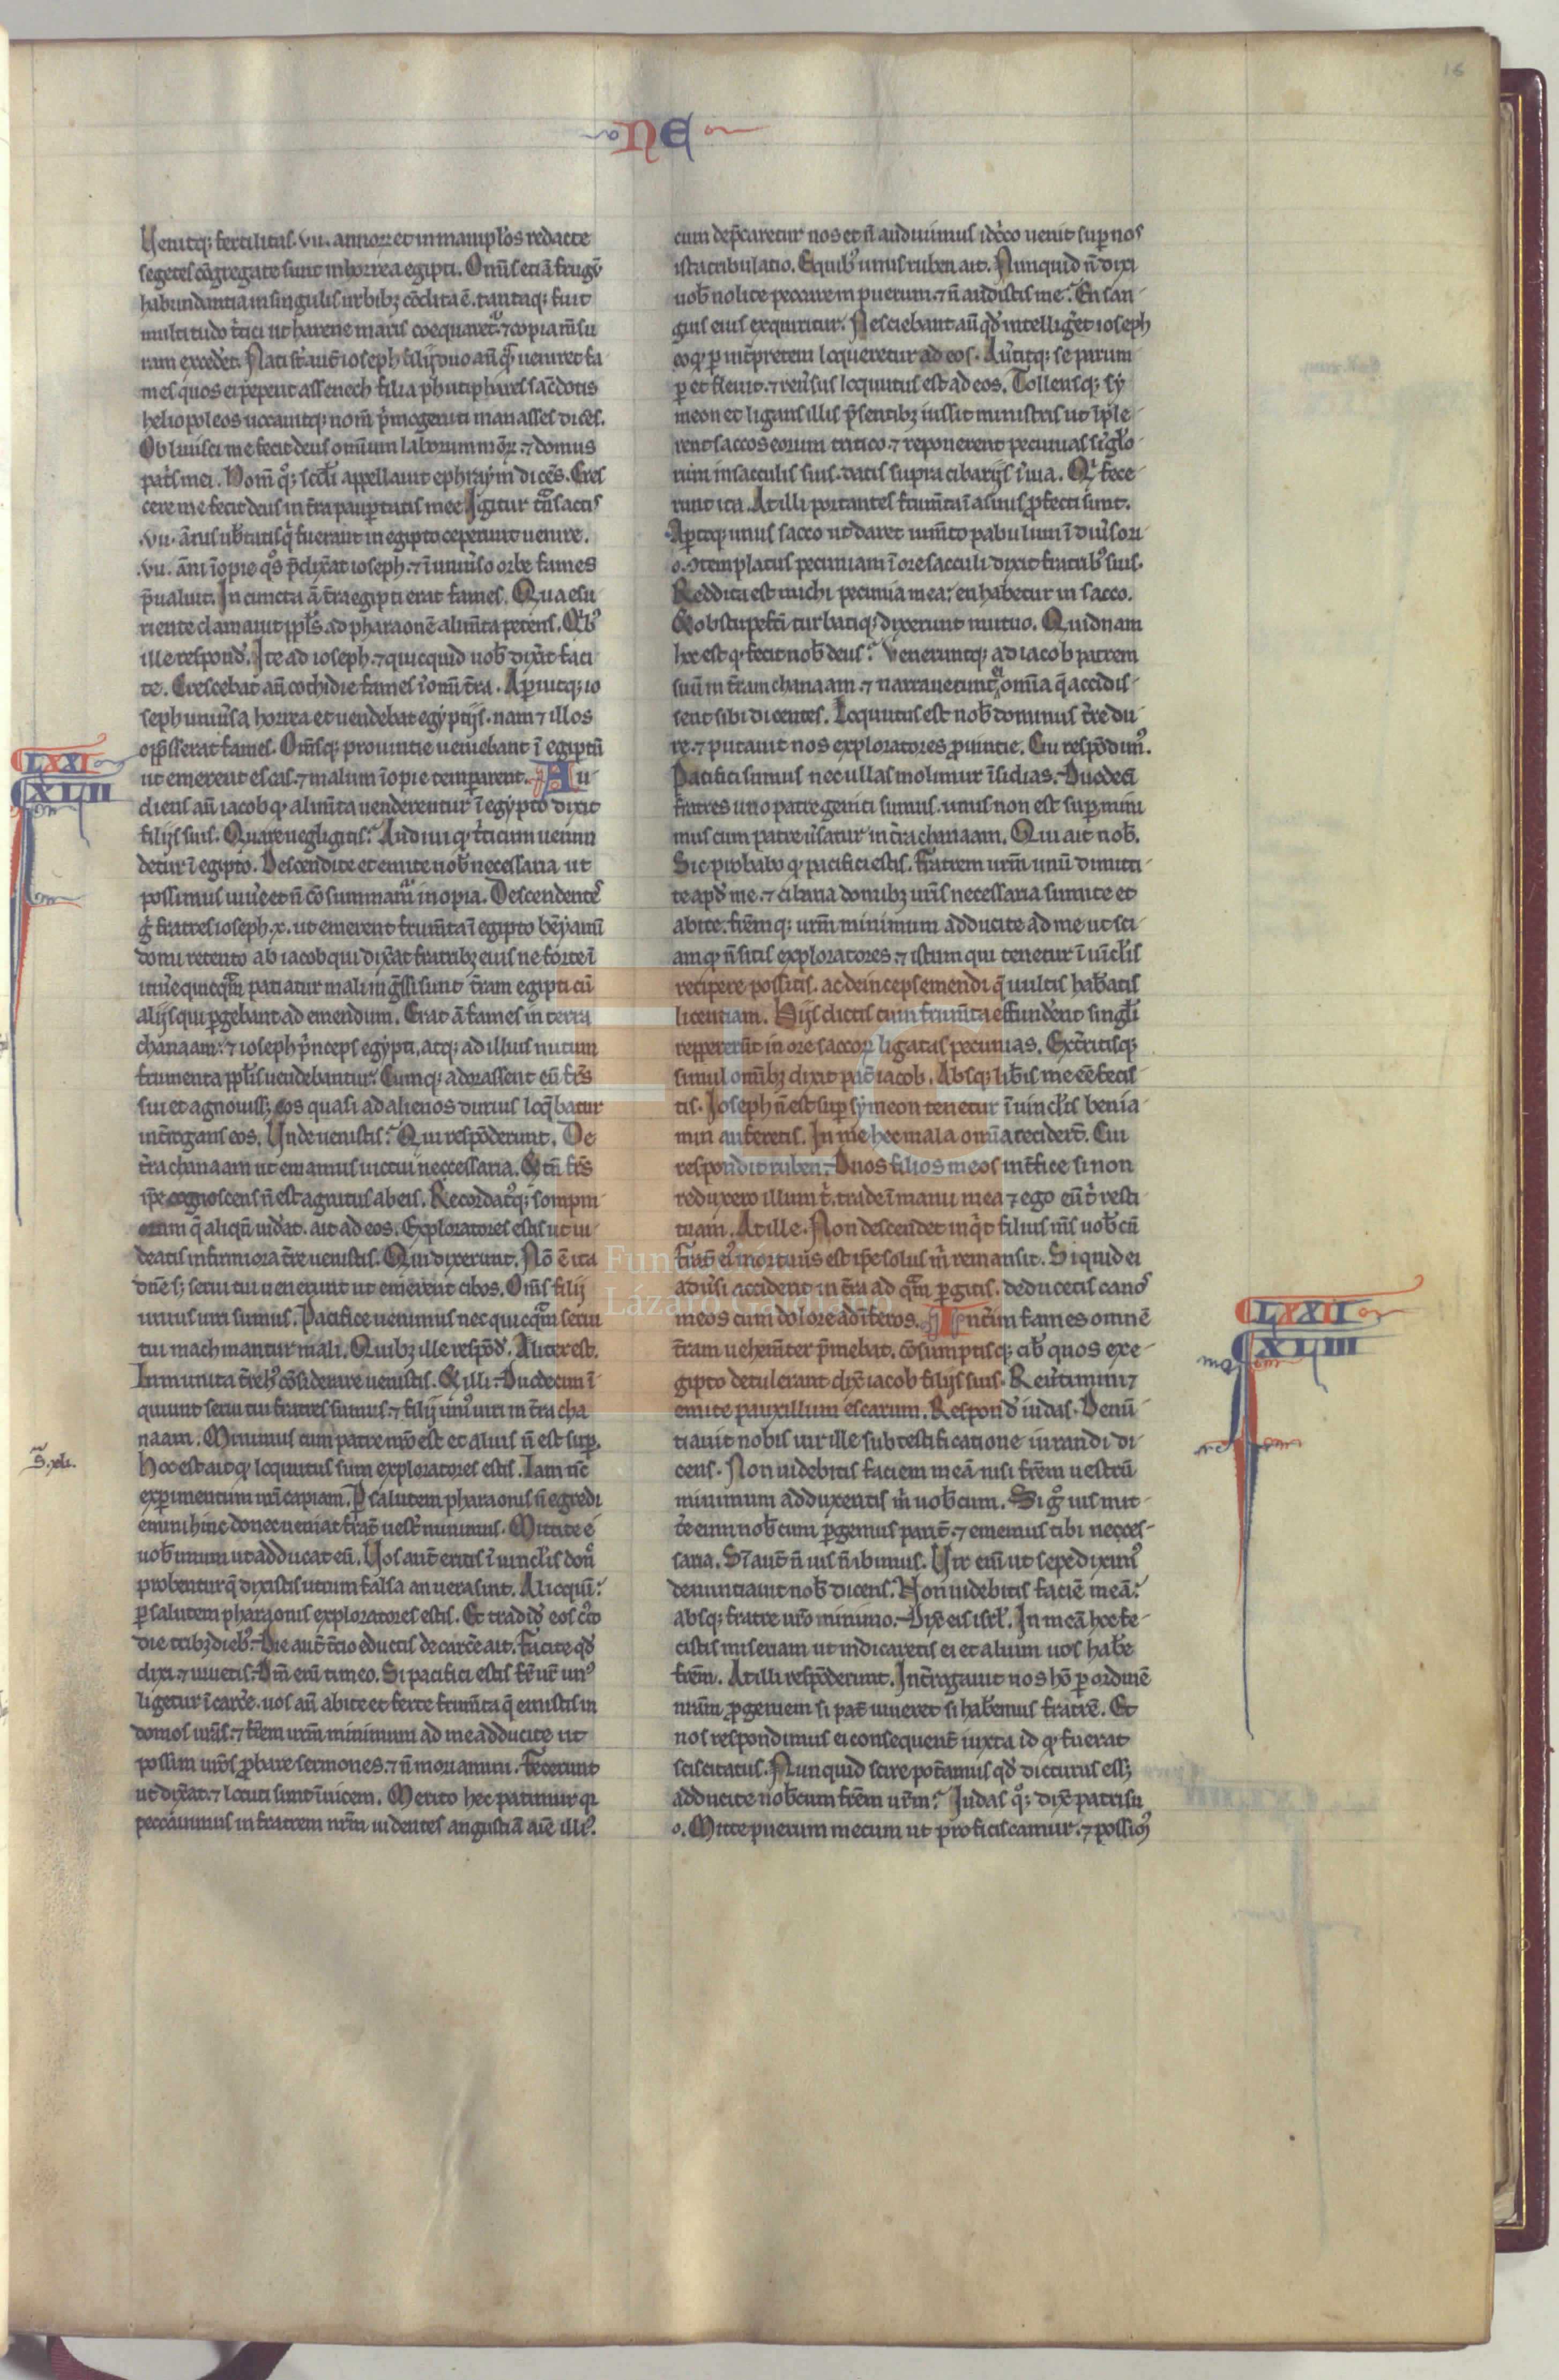 16
NE
Venitq; fertilitas .vii. annoꝝ et in manipl'os redacte
segetes cōgregate sunt in horrea egipti. Om̄s etiā frugū
habundantia in singulis urbibꝫ cōdita ē. tantaq; fuit
multitudo tͥtici ut harene maris coequaret᷑ ⁊ copia m̄su
ram excedet. Nati st̄ aut̄ ioseph filij duo an̄ qͣ ueniret fa
mes quos ei peperit assenech filia phutiphares sac̄dotis
heliopoleos uocauitq; nom̄ pͥmogeniti manasses dicēs.
Obliuisci me fecit deus omnium laborum mōꝝ ⁊ domus
patͥs mei. Nom̄ qͦ; scd̄i appellauit ephraym dicēs. Cres
cere me fecit deus in tr̄a paup̄tatis mee. Igitur tͣsactis
.vii. annis ub̄tatis qͥ fuerant in egipto ceperunt uenire
.vii. ān̄i īopie qͦs p̄dixāt ioseph. ⁊ ī uniu̾so orbe fames
p̄ualuit. In cuncta ā tr̄a egipti erat fames. Qua esu
riente clamauit ppl's ad pharaonē alim̄ta petens. Qͥbꝰ
ille respond̄. Ite ad ioseph. ⁊ quicquid uob̄ dixͥt faci
te. Crescebat au̅ cothidie fames ī omī tr̄a. Ap̄uitq; io
seph uniu̾sa horrea et uendebat egyptijs. nam ⁊ illos
opp̄sserat fames. Om̄sq; prouintie ueniebant ī egiptū
LXXI
ut emerent escas. ⁊ malum īopie temperarent. Au
XLII
diens au̅ iacob qͥ alim̄ta uenderentur ī egypto dixit
filijs suis. Quare negligitis? Audiui qͥ tͥticum uenun
detur ī egipto. Descendite et emite nob̄ necessaria ut
possimus uiu̾e et n̄ cōsummāt᷑ inopia. Descendentes
gͥ fratres ioseph .x. ut emerent frum̄ta ī egipto bēyamī
domi retento ab iacob qui dixāt fratribꝫ eius ne forte ī
itīe quicqͣm patiatur mali ingͥssi sunt tr̄am egipti cū
alijs qui p̄gebant ad emendum. Erat ā fames in terra
chanaam. ⁊ ioseph pͥnceps egypti, atq; ad illius nutum
frumenta ppl'is uendebantur. Cumq; adorassent eū fr̄s
sui et agnouiss; eos quasi ad alienos durius loqͤbatur
int̄rogans eos. Unde uenistis? Qui respōderunt. De
tr̄a chanaam ut emamus uictui neccessaria. Et tn̄ fr̄s
ip̄e cognoscens n̄ est agnitus ab eis. Recordatꝰq; sompni
orum qͤ aliqn̄ uidāt. ait ad eos. Exploratores estis ut ui
deatis infirmiora tr̄e uenistis. Qui dixerunt. Nō ē ita
dn̄e s; serui tui uenerunt ut emerent cibos. Om̄s filij
unius uiri sumus. Pacifice uenimus nec quicqͣm serui
tui machinantur mali. Quibꝫ ille respōd̄. Aliter est.
Inmunita tr̄e hꝰ cōsiderare uenistis. Et illi. Duodecim ī
quiunt serui tui fratres sumus. ⁊ filij unꝰ uiri in tr̄a cha
naam. Minimus cum patre nr̄o est et alius n̄ est sup̄.
S. xli.
Hoc est ait qͥ loquutus sum exploratores estis. Iam nc̄
experimentum ur̄i capiam. P̄ salutem pharaonis n̄ egredi
emini hinc donec ueniat frat̄ uest̄ minimus. Mittite ē
uob̄ unum ut adducat eū. Uos aut̄ eritis ī uincl'is donͨ
probentur qͤ dixistis utrum falsa an uera sint. Alioquī?
p̄ salutem pharaonis exploratores estis. Et tradid̄ eos c̾to
die tribꝫ diebꝰ. Die aut̄ tc̄io eductis de carc̄e ait. Facite qd̄
dixi ⁊ uiuetis. Dm̄ eni̅ timeo. Si pacifici estis fr̄ ur̄ unꝰ
ligetur ī carc̄e. uos au̅ abite et ferte frum̄ta qͤ emistis in
domos ur̄as. ⁊ fr̄em ur̄m minimum ad me adducite ut
possim ur̄os ꝓbare sermones. ⁊ n̄ moriamini. Fecerunt
ut dixāt ⁊ locuti sunt īuicem. Merito hec patimur qͥ
peccauimus in fratrem nr̄m uidentes angustiā aīe illiꝰ.
cum dep̄caretur nos et n̄ audiuimus idc̾co uenit sup̄ nos
ista tribulatio. E quibꝰ unus ruben ait. Nunquid n̄ dixi
uob̄ nolite peccare in puerum. ⁊ n̄ audistis me? En san
guis eius exquiritur. Nesciebant au̅ qd̄ intelligͤet ioseph
eoqͥ p̄ int̄pretem loqueretur ad eos. Au̾titq; se parum
p̄ et fleuit. ⁊ reu̾sus loquutus est ad eos. Tollensq; sy
meon et ligans illis p̄sentibꝫ iussit ministris ut īple
rent saccos eorum tritico. ⁊ reponerent pecunias sīgl'o
rum in sacculis suis. datis supra cibarijs ī uia. Qͥ fece
runt ita. At illi portantes frum̄ta ī asinis ꝓfecti sunt.
Ap̄tq; unus sacco ut daret ium̄to pabulum ī diu̾sori
o. ꝯtemplatus pecuniam ī ore sacculi dixit fratribꝰ suis.
Reddita est michi pecunia mea. en habetur in sacco.
Et obstupefc̄i turbatiq; dixerunt mutuo. Quidnam
hoc est qͥ fecit nob̄ deus? Ueneruntq; ad iacob patrem
suū in tr̄am chanaam. ⁊ narrauerunt ei omīa qͤ accidis
sent sibi dicentes. Loquutus est nob̄ dominus tr̄e du
re. ⁊ putauit nos exploratores ꝓuintie. Cui respōdimꝰ.
Pacifici sumus nec ullas molimur īsidias. Duodecī
fratres uno patre geniti sumus. unus non est sup̄. mini
mus cum patre u̾satur in tr̄a chanaam. Qui ait nob̄.
Sic probabo qͥ pacifici estis. Fratrem ur̄m unū dimitti
te apd̄ me. ⁊ cibaria domibꝫ ur̄is necessaria sumite et
abite. fr̄emq; ur̄m minimum adducite ad me ut sci
am qͥ n̄ sitis exploratores. ⁊ istum qui tenetur ī uīcl'is
recipere possitis. ac deinceps emendi qͤ uultis hab̄atis
licentiam. Hijs dictis cum frum̄ta effund̄ent singl'i
reppererūt in ore saccoꝝ ligatas pecunias. Ext̄ritisq;
simul omībꝫ dixit pat̄ iacob. Absq; lib̄is me eē fecis
tis. Ioseph n̄ est sup̄. symeon tenetur ī uincl'is. benia
min auferetis. In me hec mala omīa recidert̄. Cui
respondit ruben. Duos filios meos int̄fice si non
reduxero illum tͥ. trade ī manu mea ⁊ ego eū tͥ resti
tuam. At ille. Non descendet inqͥt filius m̄s uob̄cū
frat̄ eiꝰ mortuus est ip̄e solus m̄ remansit. Si quid ei
adu̾si acciderit in tr̄a ad qͣm p̄gitis. deducetis canos
LXXII
meos cum dolore ad īferos. Int̄im fames omnē
XLIII
tr̄am uehem̄ter p̄mebat. cōsumptisq; cib̄ quos ex e
gipto detulerant dix̄ iacob filijs suis. Reu̾timini ⁊
emite pauxillum escarum. Respond̄ iudas. Denū
tiauit nobis uir ille sub testificatione iurandi di
cens. Non uidebitis faciem meā nisi fr̄em uestrū
minimum adduxeritis m̄ uob̄cum. Si gͦ uis mit
t̄e eum nob̄cum p̄gemus parit̄. ⁊ ememus tibi necces
saria. Sī aut̄ n̄ uis n̄ ibimus. Uir eni̅ ut sepe diximꝰ
denuntiauit nob̄ dicens. Non uidebitis faciē meā?
absq; fratre ur̄o minimo. Dix̄ eis isrl'. In meā hoc fe
cistis miseriam ut indicaretis ei et alium uos hab̄e
fr̄em. At illi respōderunt. Int̄rogauit nos hō p̄ ordinē
nr̄am ꝓgeniem si pat̄ uiueret si hab̄emus fratrē. Et
nos respondimus ei consequent̄ iuxta id qͥ fuerat
sciscitatus. Nunquid scire pot̄amus qd̄ dicturus ess;
adducite nob̄cum fr̄em ur̄m? Iudas qͦ; dix̄ patri su
o. Mitte puerum mecum ut proficiscamur. ⁊ possimꝰ